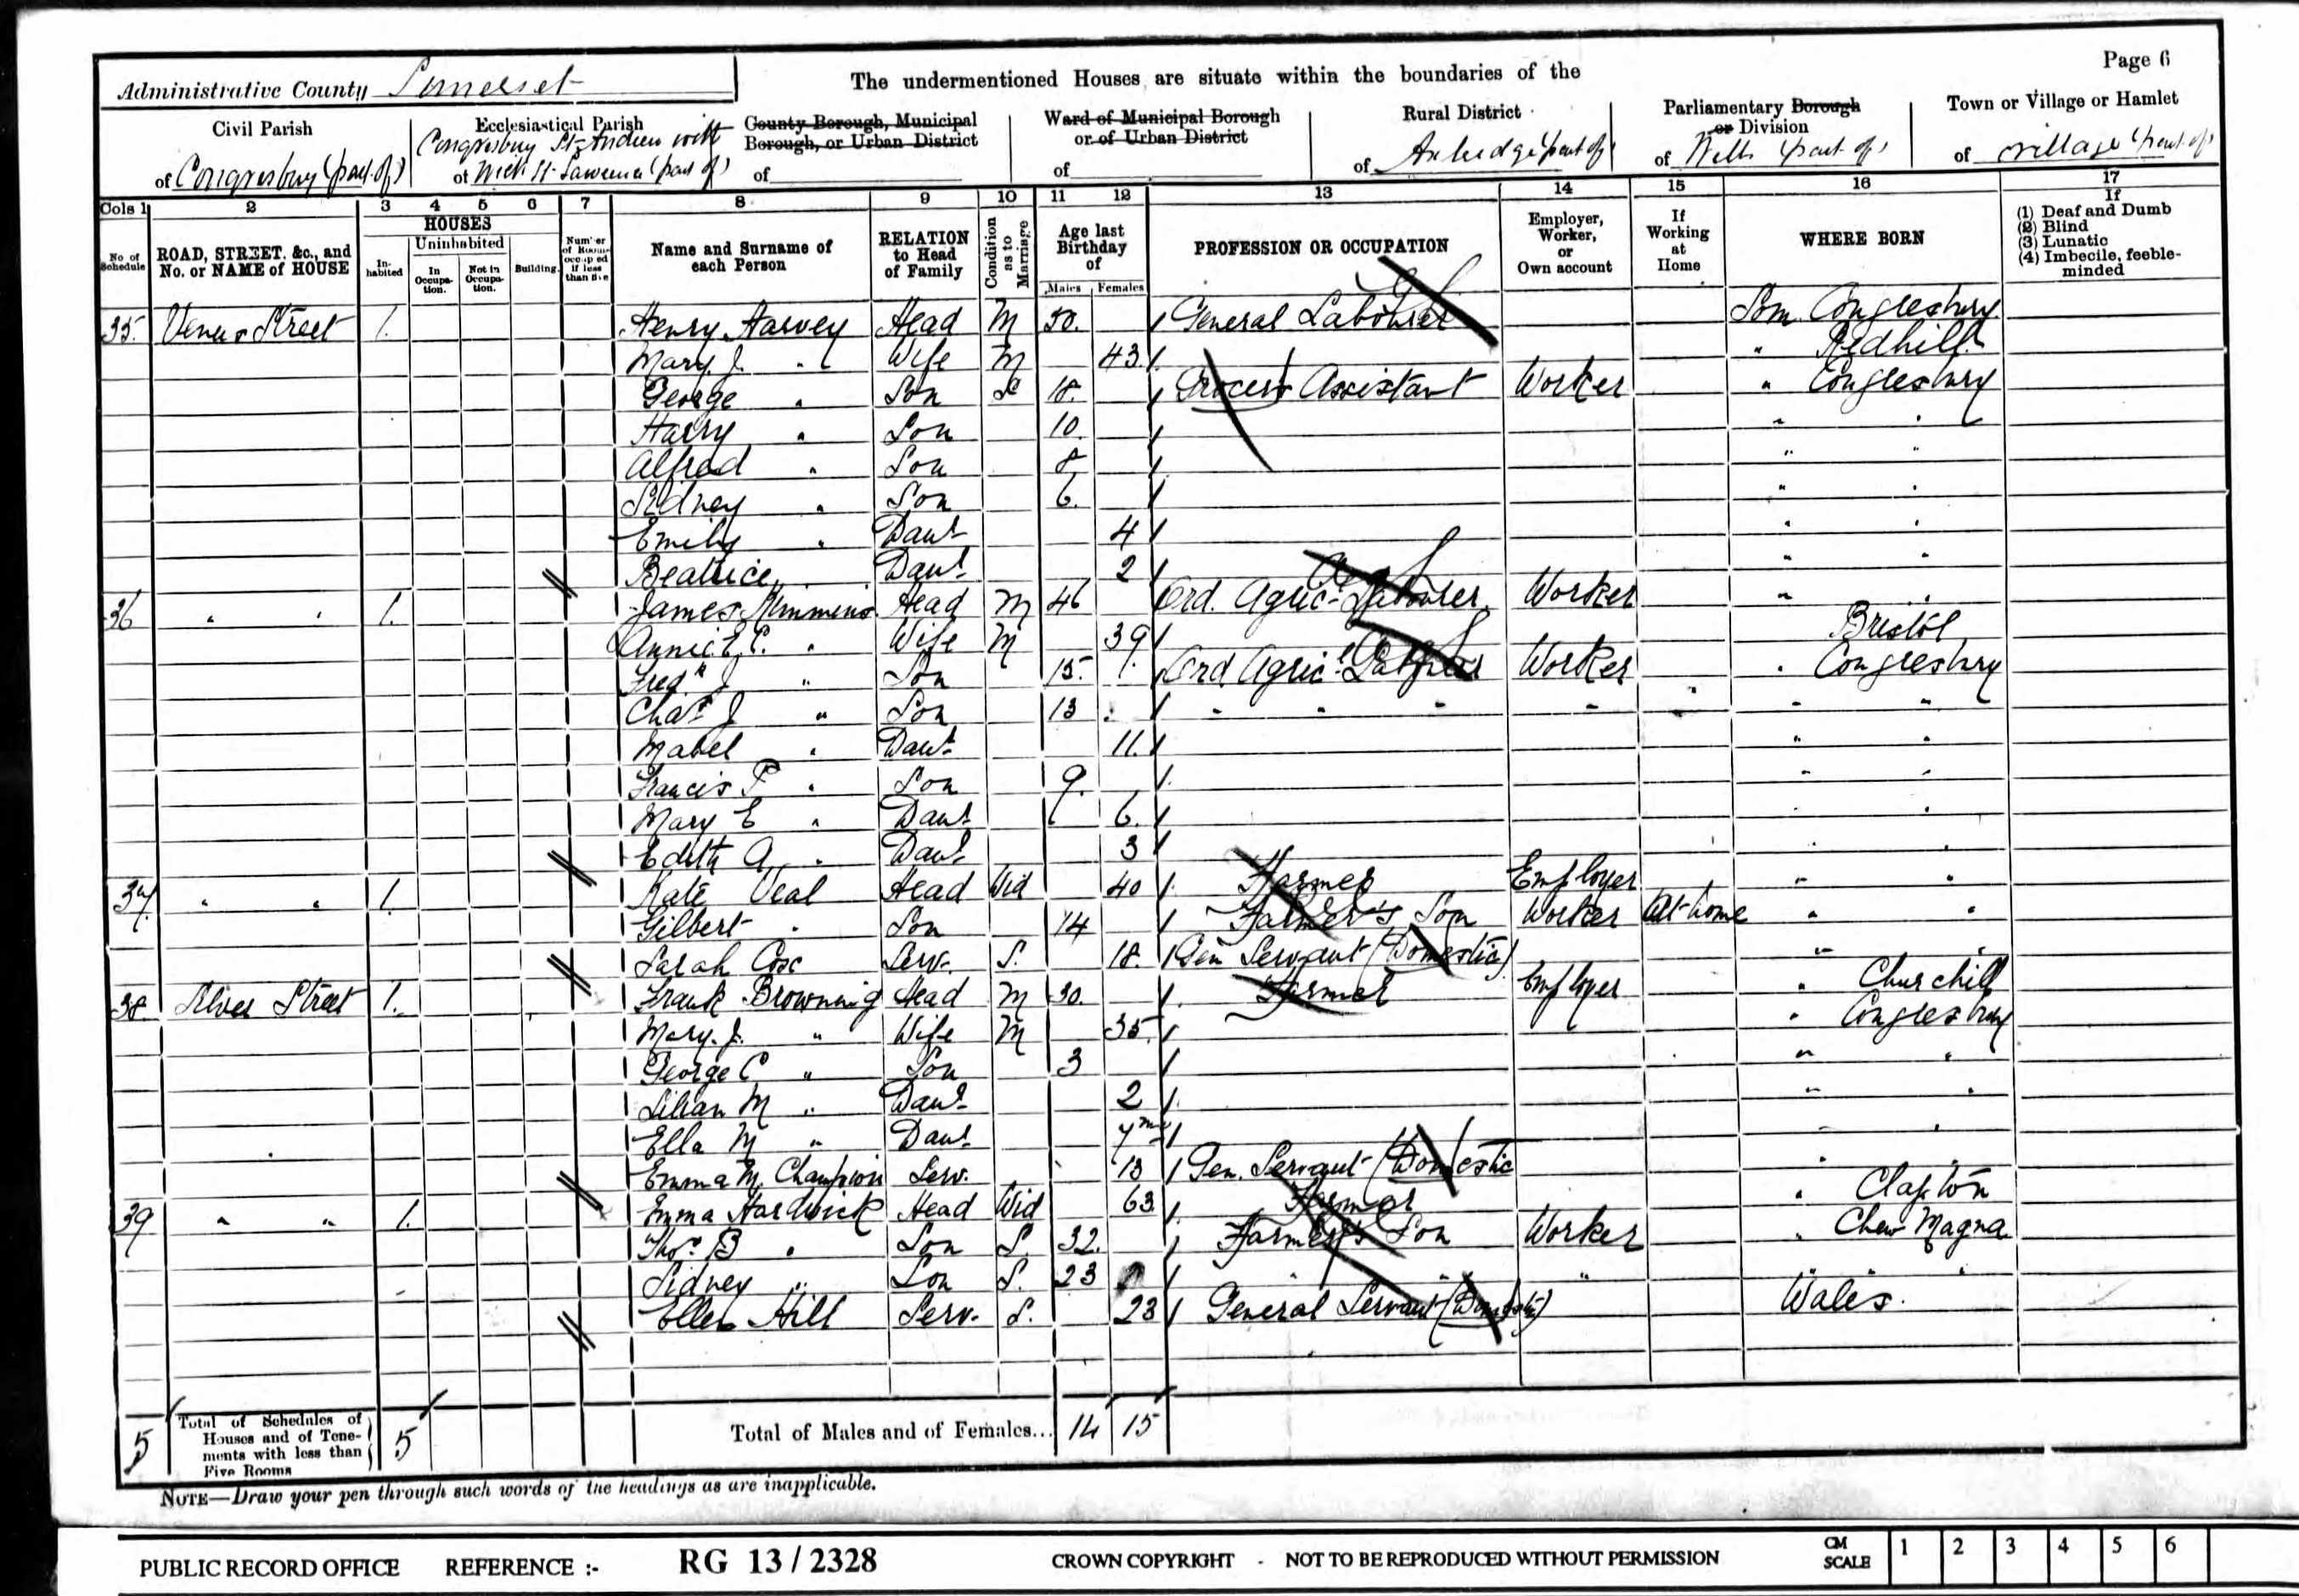 Page 6
Administrative County Somerset
The undermentioned Houses are situate within the boundaries of the
Civil Parish
of Congresbury (part of)
Ecclesiastical Parish
Congresbury St Andrew with
of Wick St. Lawrence (part of)
County Borough, Municipal
Borough, or Urban District
of
Ward of Municipal Borough
or of Urban District
of
Rural District
of Axbridge (part of)
Parliamentary Borough
or Division
of Wells (part of)
Town or Village or Hamlet
of village (part of)
Cols 1 2 3 4 5 6 7 8 9 10 11 12 13 14 15 16 17
No of Schedule
ROAD, STREET, &c., and No. or NAME of HOUSE
HOUSES
Inhabited
Uninhabited
In Occupation.
Not in Occupation.
Building.
Number of Rooms occupied if less than five
Name and Surname of each Person
RELATION to Head of Family
Condition as to Marriage
Age last Birthday of
Males Females
PROFESSION OR OCCUPATION
Employer, Worker, or Own account
If Working at Home
WHERE BORN
If
(1) Deaf and Dumb
(2) Blind
(3) Lunatic
(4) Imbecile, feeble-minded
35. Venus Street 1. Henry Harvey Head M 50. General Labourer Som Congresbury
Mary J. " Wife M 43 " Redhill
George " Son S 18. Grocers Assistant Worker " Congresbury
Harry " Son 10. " "
Alfred " Son 8 " "
Sidney " Son 6. " "
Emily " Daur 4 " "
Beatrice " Daur 2 " "
36 " " 1. James Kimmins Head M 46 Ord. Agric. Labourer Worker " "
Annie E. " Wife M 39 Bristol
Fredk J " Son 15. Ord Agric. Labourer Worker " Congresbury
Chas J " Son 13 " " " " " "
Mabel " Daur 11. " "
Francis " Son 9. " "
Mary E " Daur 6. " "
Edith A " Daur 3 " "
37 " " 1. Kate Veal Head Wid 40 Farmer Employer " "
Gilbert " Son 14 Farmer's Son Worker At home " "
Sarah Cox Serv. S. 18. Gen Servant (Domestic) " "
38 Silver Street 1. Frank Browning Head M 30. Farmer Employer " Churchill
Mary. J. " Wife M 35. " Congresbury
George C " Son 3 " "
Lilian M " Daur 2 " "
Ella M " Daur 7m "
Emma M. Champion Serv. 13 Gen. Servant (Domestic " "
39 " " 1. Emma Hardwick Head Wid 63 Farmer " Clapton
Thos. B " Son S. 32. Farmer's Son Worker " Chew Magna
Sidney " Son S. 23 " " " " "
Ellen Hill Serv. S. 23 General Servant (Domestic) Wales.
5 Total of Schedules of Houses and of Tenements with less than Five Rooms 5 Total of Males and of Females... 14 15
NOTE—Draw your pen through such words of the headings as are inapplicable.
PUBLIC RECORD OFFICE REFERENCE :- RG 13/2328 CROWN COPYRIGHT - NOT TO BE REPRODUCED WITHOUT PERMISSION CM SCALE 1 2 3 4 5 6